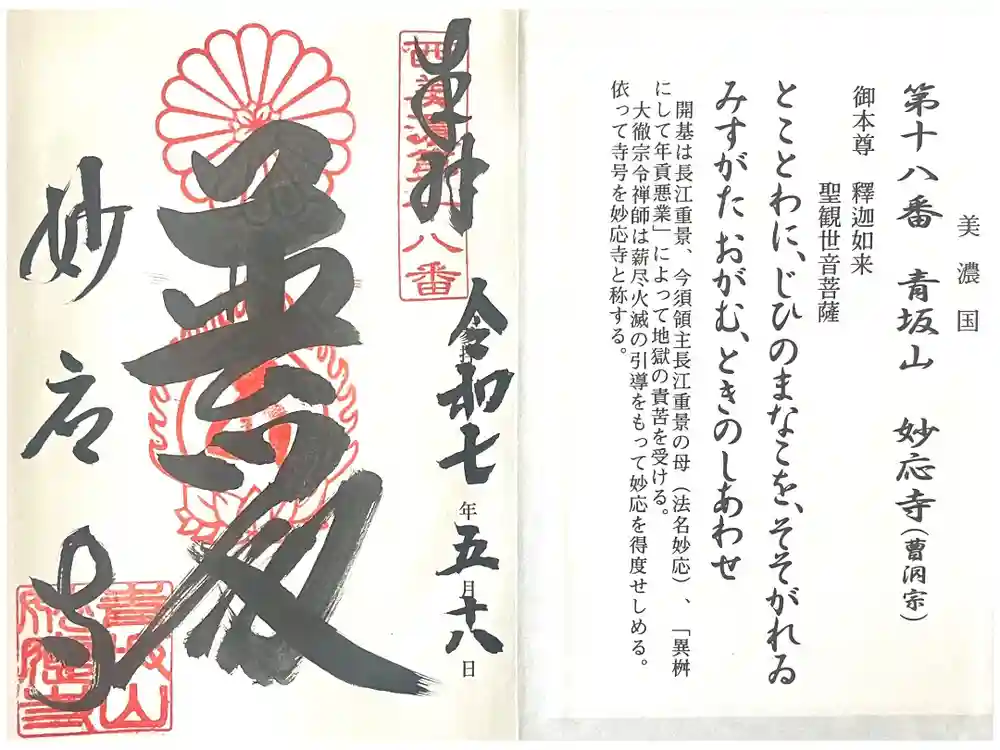 美濃国
第十八番　青坂山　妙応寺（曹洞宗）
御本尊　釋迦如来
聖観世音菩薩
とことわに、じひのまなこを、そそがれゐ
みすがたおがむ、ときのしあわせ
開基は長江重景、今須領主長江重景の母（法名妙応）、「異桝
にして年貢悪業」によって地獄の責苦を受ける。
大徹宗令禅師は薪尽火滅の引導をもって妙応を得度せしめる。
依って寺号を妙応寺と称する。
奉拝
西美濃第十八番
令和七年五月十八日
妙応寺
青坂山
妙應寺